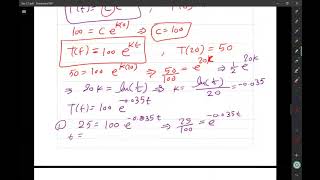 T(t) = C e
100 = C e^{k(0)} ⇒ C = 100
T(t) = 100 e^{kt} , T(20) = 50
50 = 100 e^{20k} ⇒ 50/100 = e^{20k} ⇒ 1/2 = e^{20k}
⇒ 20k = ln(1/2) ⇒ k = ln(1/2)/20 = -0.035
T(t) = 100 e^{-0.035t}
25 = 100 e^{-0.035t} ⇒ 25/100 = e^{-0.035t}
t =